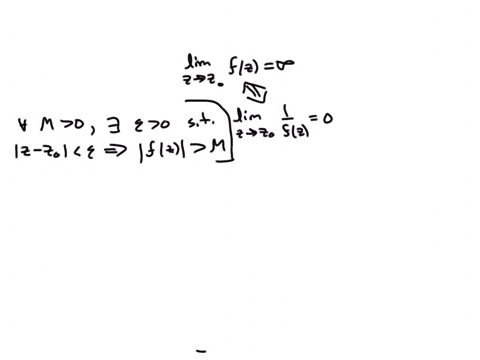 lim z→z₀ f(z) = ∞
∀ M > 0, ∃ ε > 0 s.t.
|z − z₀| < ε ⇒ |f(z)| > M
lim z→z₀ 1/f(z) = 0